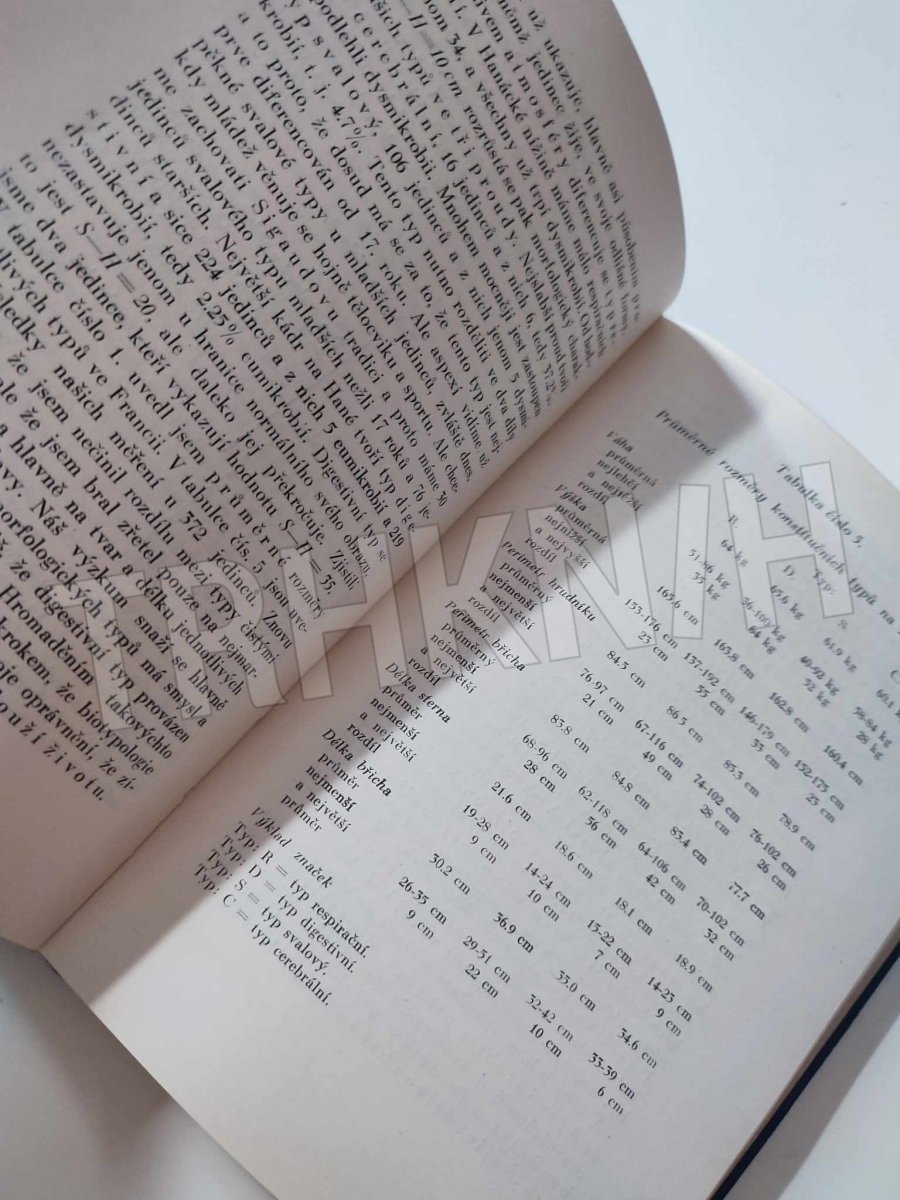 už ukazuje, hlavně asi působením pro-
němž jedinec žije, ve svoje odlišné tvary.
ivem atmosféry diferencuje se typ re-
í. V Hanácké nížině máme málo respiračních
lom 34, a všechny už trpí dysmikrobií. Od hod-
—H = 10 cm rozrůstá se pak morfologický charak-
ašich typů ve tři proudy. Nejslabší proud tvoří
cerebrální, 16 jedinců a z nich 6, tedy 37.2%,
podlehli dysmikrobii. Mnohem mocněji jest zastoupen
yp svalový, 106 jedinců a z nich jenom 5 dysmi-
krobií, t. j. 4.7%. Tento typ nutno rozděliti ve dva díly
a to proto, že dosud má se za to, že tento typ jest nej-
prve diferencován od 17. roku. Ale aspexí vidíme už
pěkné svalové typy u mladších jedinců, zvláště dnes,
kdy mládež věnuje se hojně tělocviku a sportu. Ale chce-
me zachovati Sigaudovu tradici a proto máme 30
jedinců svalového typu mladších nežli 17 roků a 76 je-
dinců starších. Největší kádr na Hané tvoří typ dige-
stivní a sice 224 jedinců a z nich 5 eumikrobií a 219
dysmikrobií, tedy 2.25% eumikrobií. Digestivní typ se
nezastavuje jenom u hranice normálního svého obrazu,
to jest S—H = 20, ale daleko jej překročuje. Zjistil
jsme dva jedince, kteří vykazují hodnotu S—H = 35.
V tabulce číslo 1. uvedl jsem průměrné rozměry
tlivých typů ve Francii. V tabulce čís. 5 jsou uve-
ledky našich měření u 372 jedinců. Znovu
že jsem nečinil rozdílu mezi typy čistými
ale že jsem bral zřetel pouze na nejmar-
a hlavně na tvar a délku jednotlivých
avy. Náš výzkum snaží se hlavně
orfologických typů má smysl a
ž, že digestivní typ provázen
Hromaděním takovýchto
krokem, že biotypologie
oje oprávnění, že zí-
ouží životu.
Tabulka číslo 5.
Průměrné rozměry konstitučních typů na
R. D. S. C
Váha
průměrná 64 kg 65.6 kg 61.9 kg 60.1 k
nejlehčí
a nejtěžší 51-86 kg 36-100 kg 40-92 kg 58-84 kg
rozdíl 35 kg 64 kg 52 kg 28 kg
Výška
průměrná 165.6 cm 163.8 cm 162.8 cm 160.4 cm
nejnižší
a nejvyšší 153-176 cm 137-192 cm 146-179 cm 152-175 cm
rozdíl 23 cm 55 cm 33 cm 23 cm
Perimetr hrudníku
průměrný 84.5 cm 86.5 cm 85.3 cm 78.9 cm
nejmenší
a největší 76-97 cm 67-116 cm 74-102 cm 76-102 cm
rozdíl 21 cm 49 cm 28 cm 26 cm
Perimetr břicha
průměrný 83.8 cm 84.8 cm 83.4 cm 77.7 cm
nejmenší
a největší 68-96 cm 62-118 cm 64-106 cm 70-102 cm
rozdíl 28 cm 56 cm 42 cm 32 cm
Délka sterna
průměr 21.6 cm 18.6 cm 18.1 cm 18.9 cm
nejmenší
a největší 19-28 cm 14-24 cm 15-22 cm 14-23 cm
rozdíl 9 cm 10 cm 7 cm 9 cm
Délka břicha
průměr 30.2 cm 36.9 cm 33.0 cm 34.6 cm
nejmenší
a největší 26-35 cm 29-51 cm 32-42 cm 33-39 cm
průměr 9 cm 22 cm 10 cm 6 cm
Výklad značek
Typ: R = typ respirační.
Typ: D = typ digestivní.
Typ: S = typ svalový.
Typ: C = typ cerebrální.
TRHKNIH